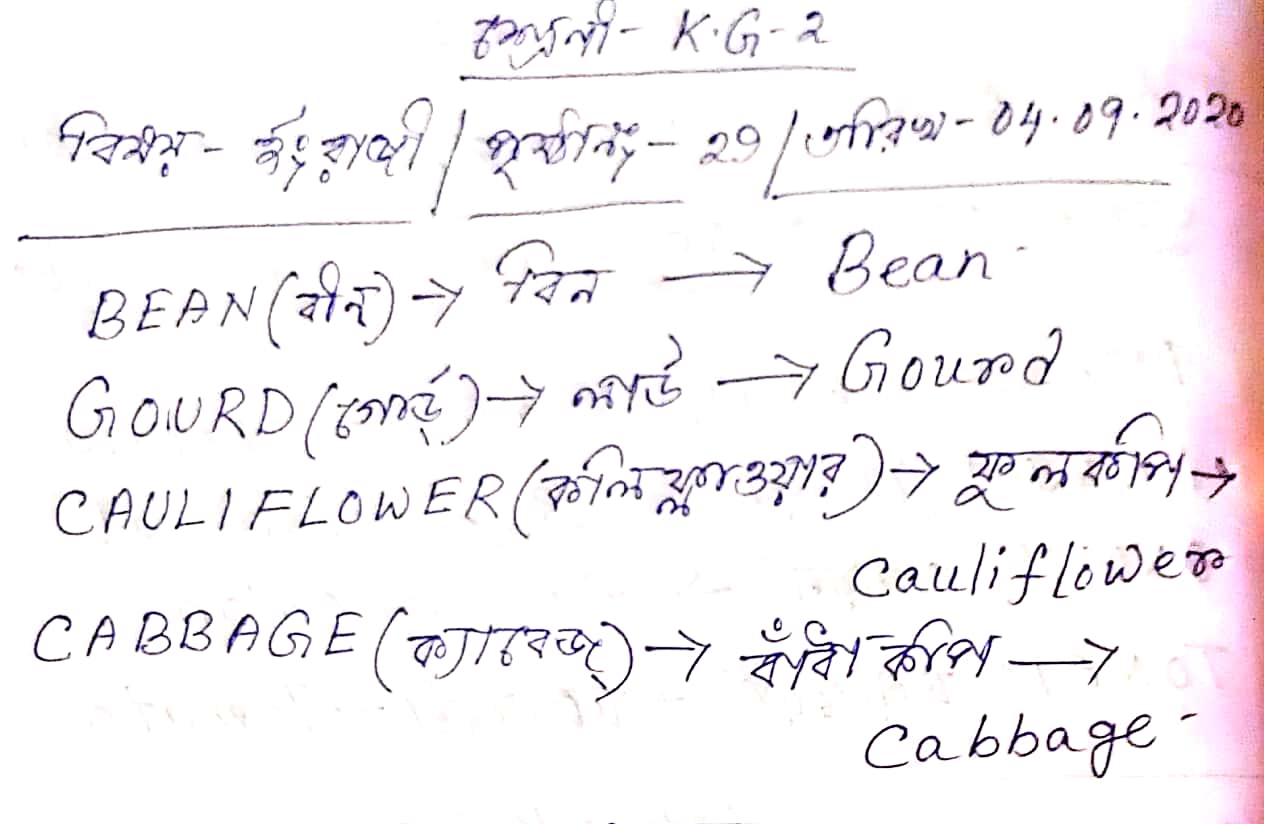 শ্রেণী- K.G-2
বিষয়- ইংরাজী / পৃষ্ঠানং- 29 / তারিখ- 04.09.2020
BEAN (বীন্) → বিন → Bean
GOURD (গোর্ড্) → লাউ → Gourd
CAULIFLOWER (কলিফ্লাওয়ার) → ফুলকপি →
Cauliflower
CABBAGE (ক্যাবেজ্) → বাঁধাকপি →
Cabbage